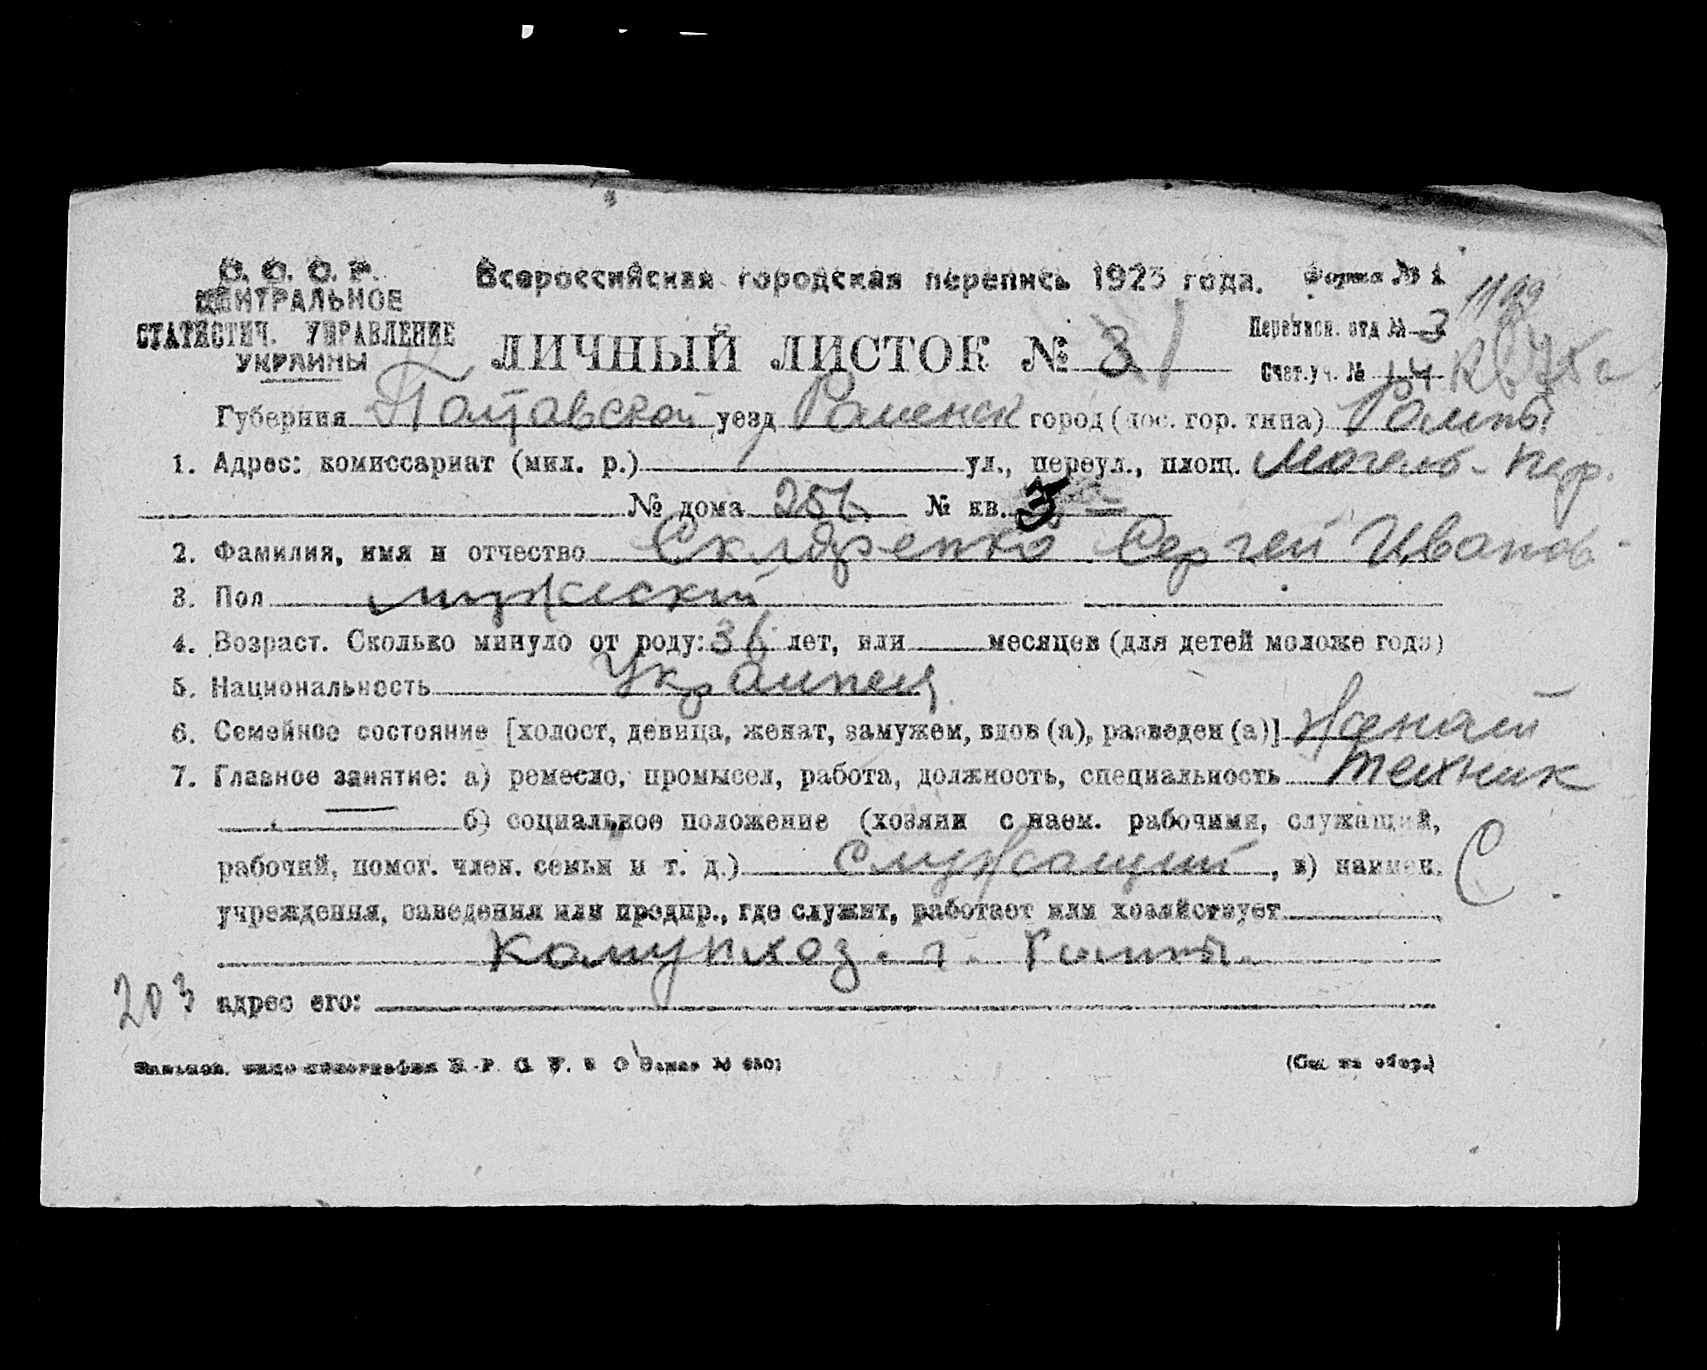 С. С. С. Р.
ЦЕНТРАЛЬНОЕ
СТАТИСТИЧ. УПРАВЛЕНИЕ
УКРАИНЫ
Всероссийская городская перепись 1923 года.
Форма № 1
1199
ЛИЧНЫЙ ЛИСТОК № 3
Перепися. отд № 3
Счет. уч. № 14
Губерния Полтавской уезд Роменск город (пос. гор. типа) Ромны
1. Адрес: комиссариат (мил. р.) ул., переул., площ. пер.
№ дома 25б № кв. 3
2. Фамилия, имя и отчество Скляренко Сергей Иванов
3. Пол мужеский
4. Возраст. Сколько минуло от роду: 36 лет, или месяцев (для детей моложе года)
5. Национальность Украинец
6. Семейное состояние [холост, девица, женат, замужем, вдов (а), разведен (а)] Женат
7. Главное занятие: а) ремесло, промысел, работа, должность, специальность техник
б) социальное положение (хозяин с наем. рабочими, служащий,
рабочий, помог. член. семьи и т. д.) Служащий, в) наимен. С
учреждения, заведения или предпр., где служит, работает или хозяйствует
Комунхоз. г. Ромны.
203 адрес его:
(См на обор.)